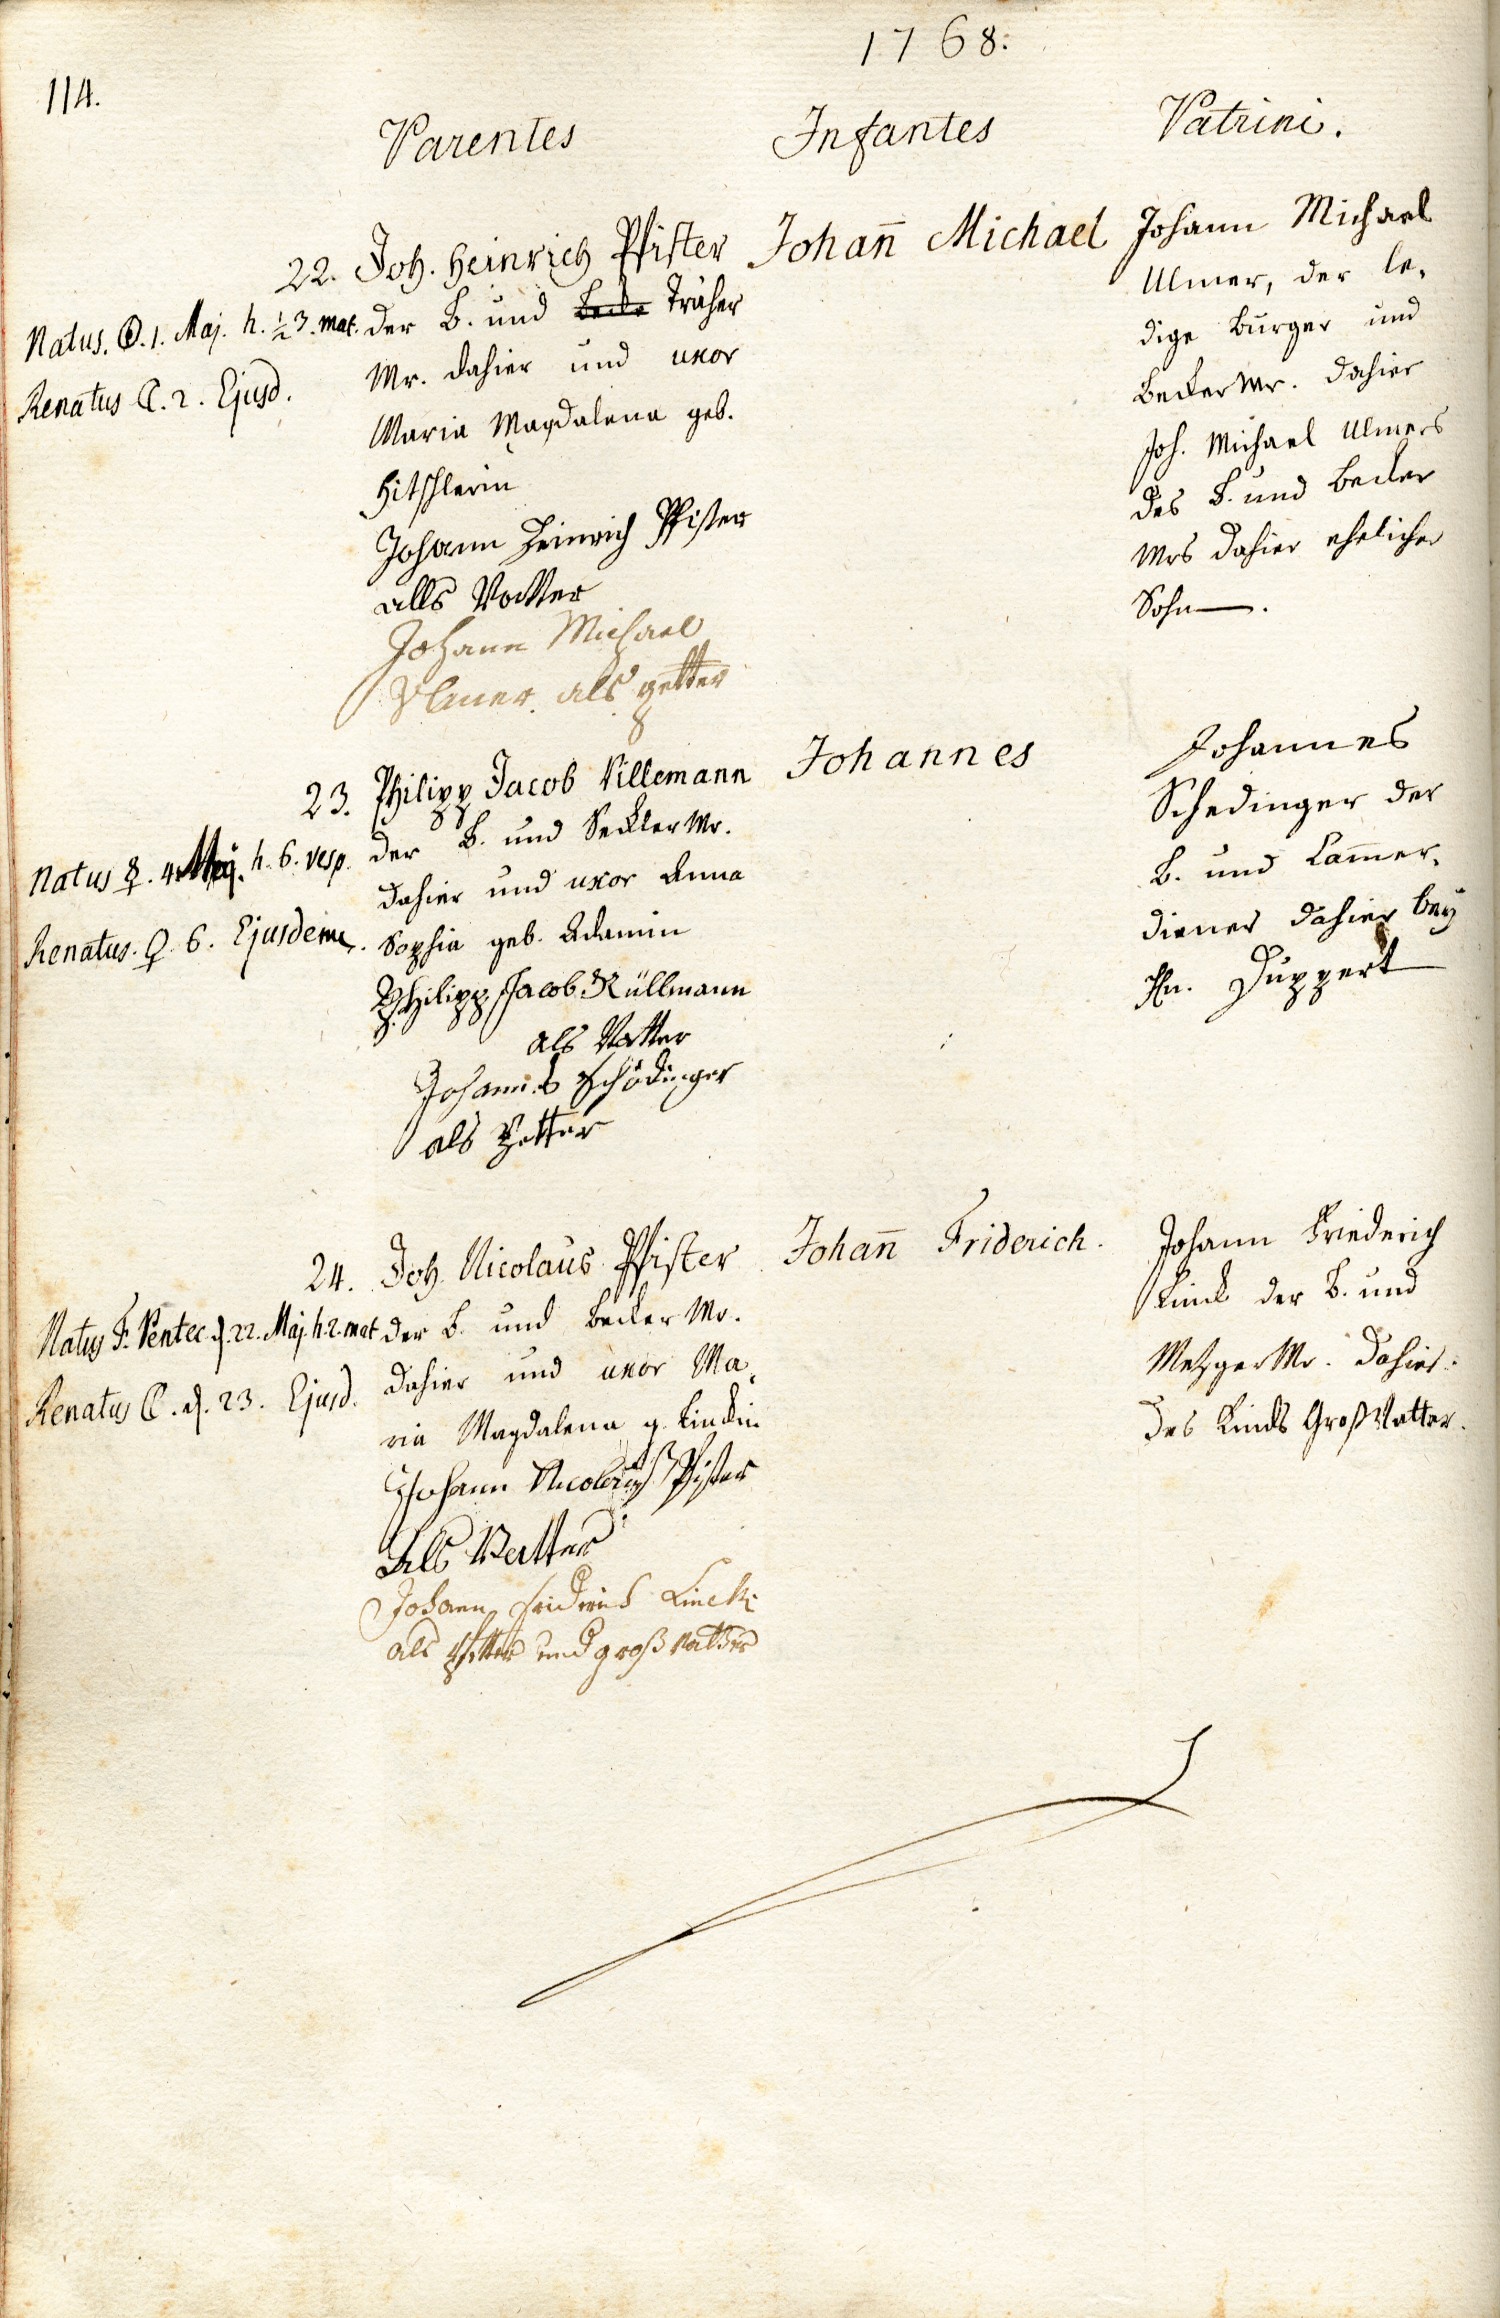 1768.
114.
Parentes
Infantes
Patrini.
22. Joh. Heinrich Pfister
Natus. ☉. 1. Maj. h. ½ 3. mat.
Renatus ☾. 2. Ejusd.
der B. und Becker Träher
Mr. dahier und uxor
Maria Magdalena geb.
Hitschlerin
Johann Heinrich Pfister
alls Vatter
Johann Michael
Ulmer. als getter
Johan̄ Michael
Johann Michael
Ulmer, der le-
dige Burger und
Becker Mr. dahier
Joh. Michael Ulmers
des B. und Becker
Mrs dahier ehelicher
Sohn.
23. Philipp Jacob Villemann
Natus ☿. 4. Maj. h. 6. vesp.
Renatus. ♀. 6. Ejusdem.
der B. und Seckler Mr.
dahier und uxor Anna
Sophia geb. Adamin
Philipp Jacob Rüllmann
als Vatter
Johannes Schödinger
als Petter
Johannes
Johannes
Schedinger der
B. und Cam̄er-
diener dahier bey
Hn. Duppert
24. Joh. Nicolaus Pfister
Natus F. Pentec. d. 22. Maj. h. 2. mat
Renatus ☾. d. 23. Ejusd.
der B. und Becker Mr.
dahier und uxor Ma-
ria Magdalena g. Linckin
Johann Nicolaus Pfister
Als Vatter
Johann Friderich Linck
als Petter und groß vatter
Johan̄ Friderich.
Johann Friederich
Linck der B. und
Metzger Mr. dahier.
des Kinds Groß Vatter.